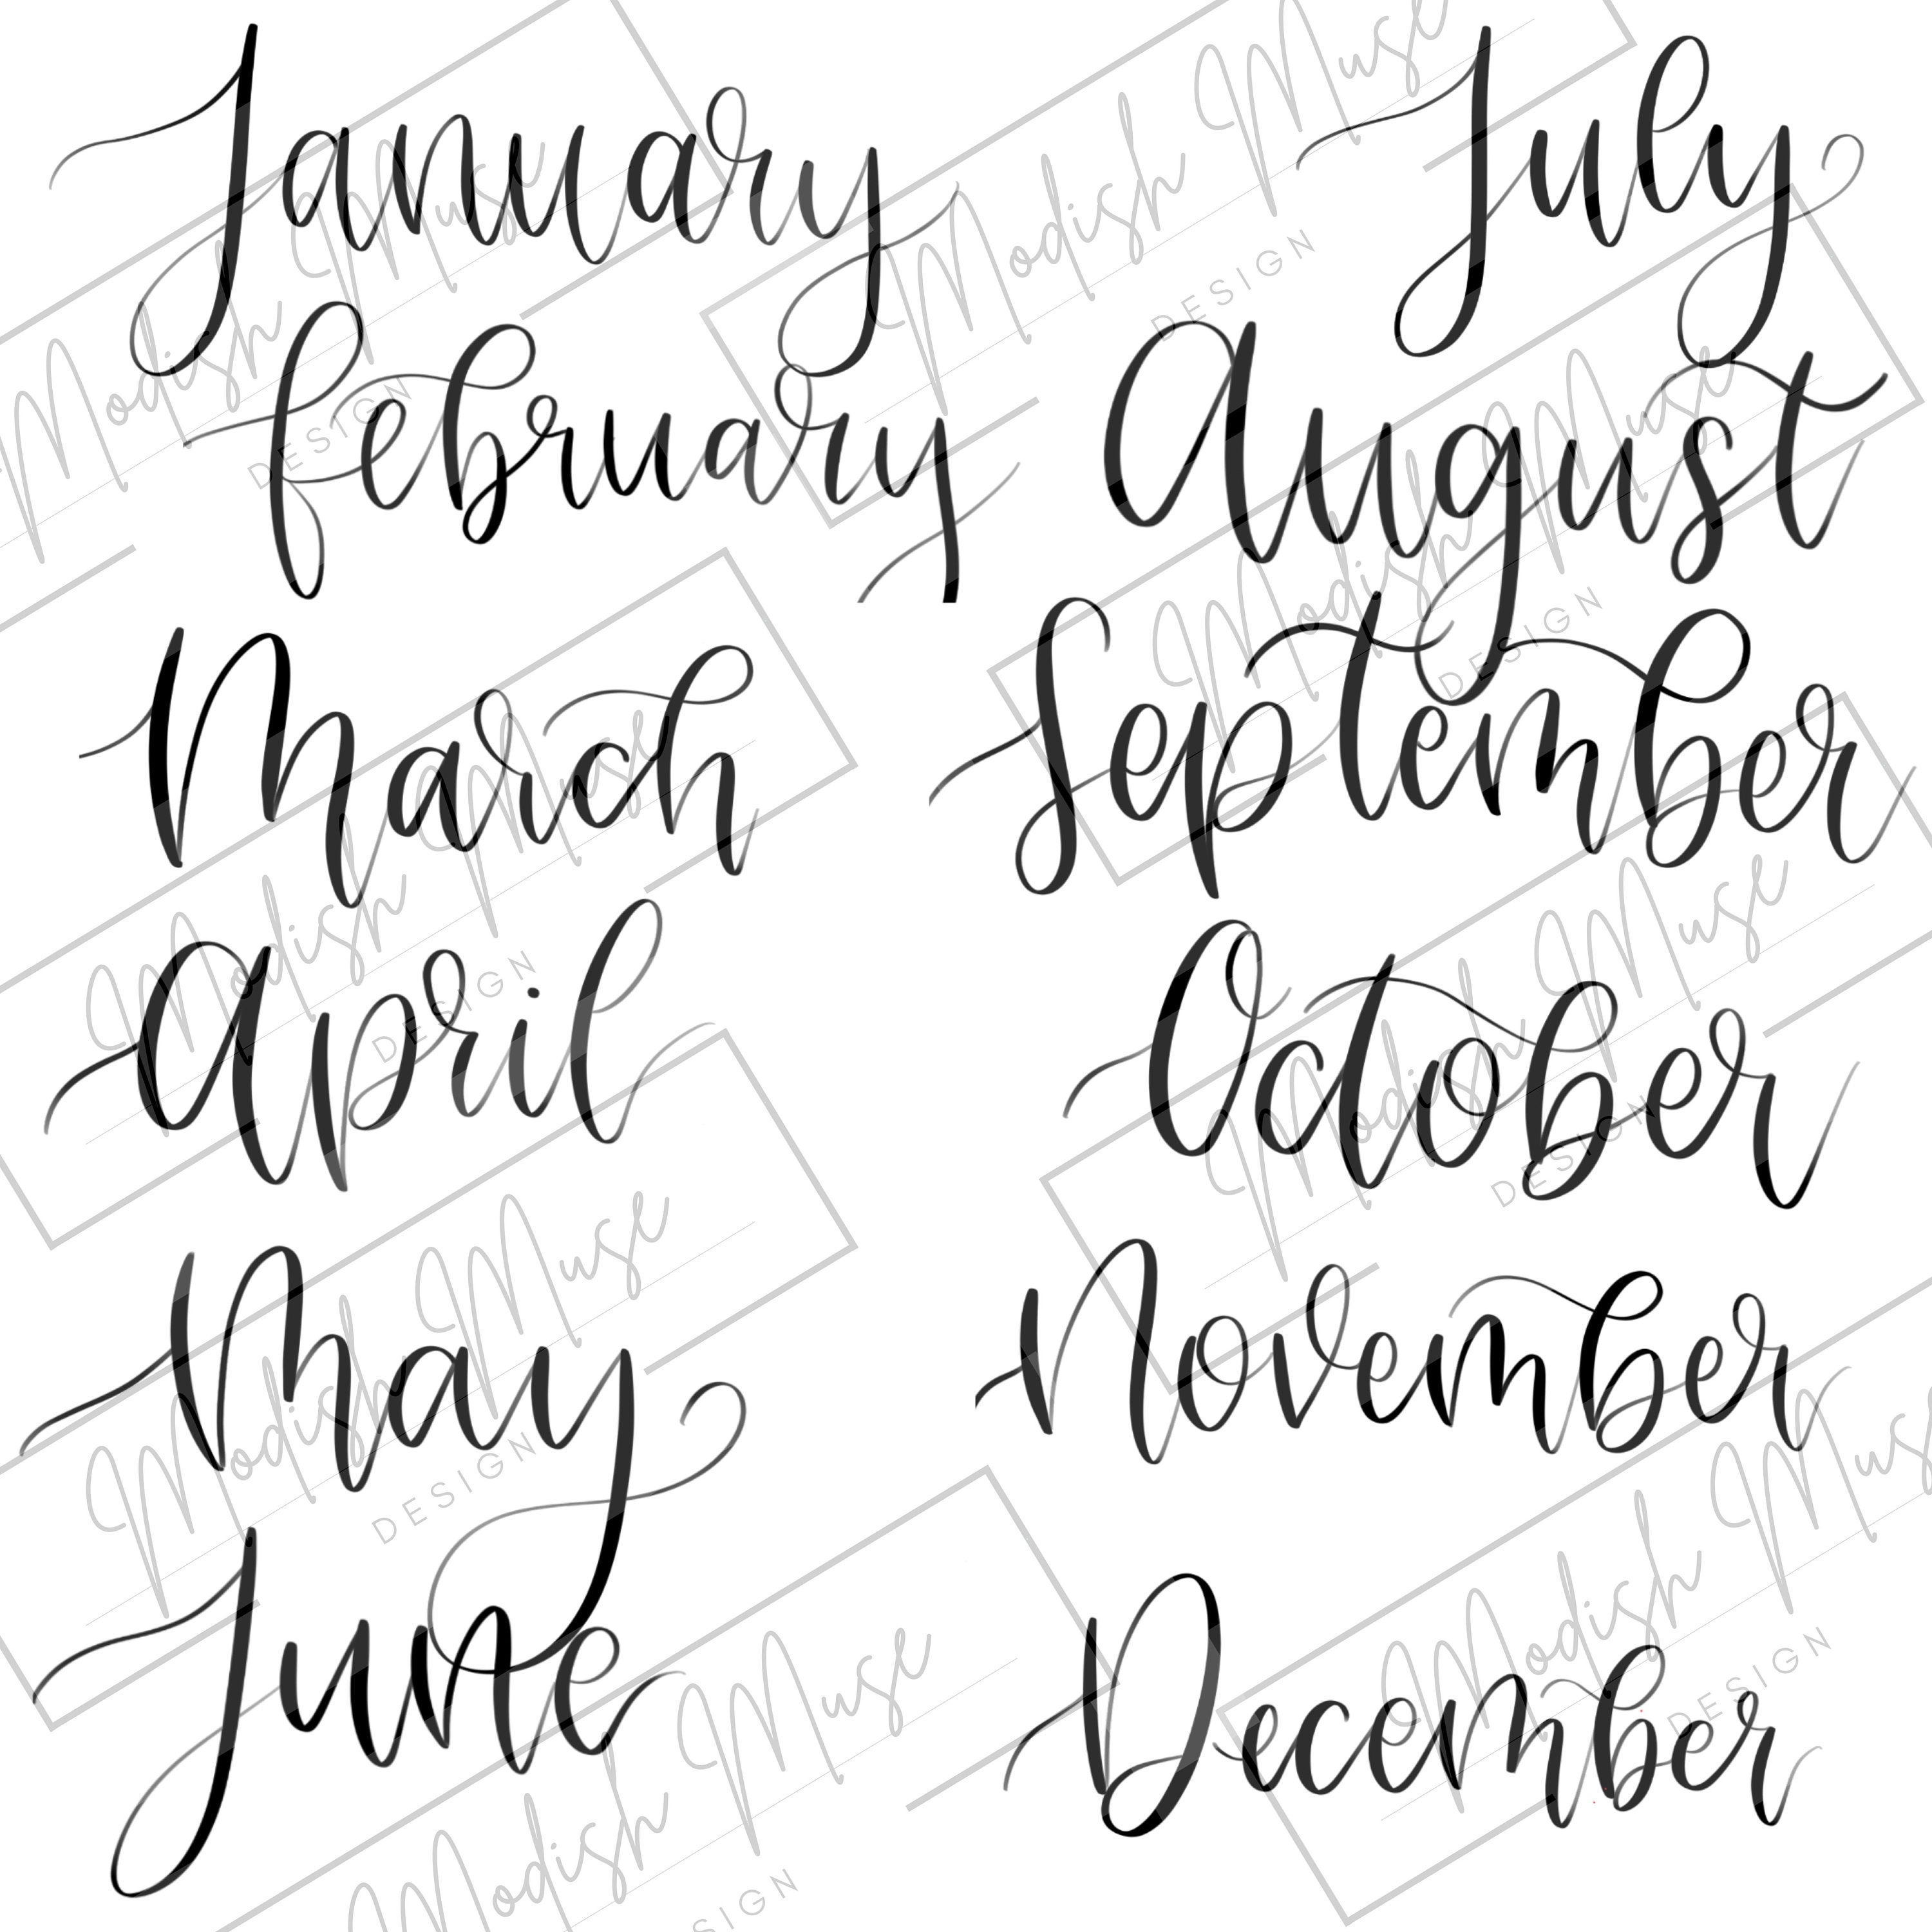 January
february
March
April
May
June
July
August
September
October
November
December
Modish Muse
DESIGN
Modish Muse
DESIGN
Modish Muse
DESIGN
Modish Muse
DESIGN
Modish Muse
DESIGN
Modish Muse
DESIGN
Modish Muse
DESIGN
Modish Muse
DESIGN